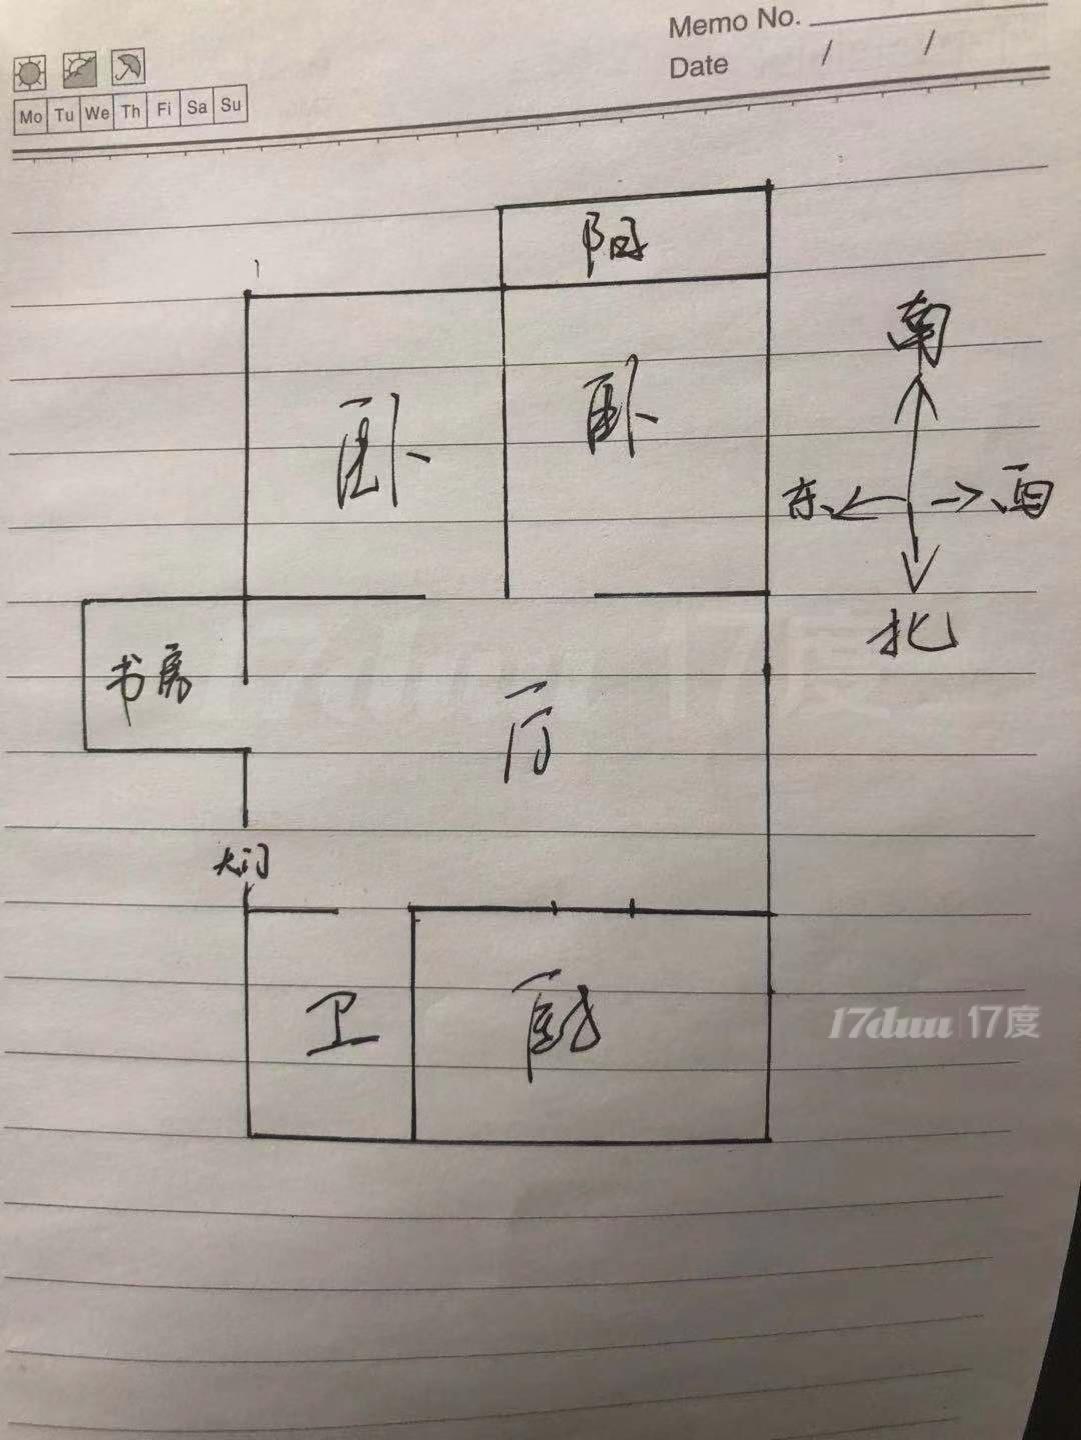 Memo No.
Date / /
Mo Tu We Th Fi Sa Su
阳
卧
卧
南
东
西
北
书房
厅
大门
卫
厨
17duu 17度
17duu 17度